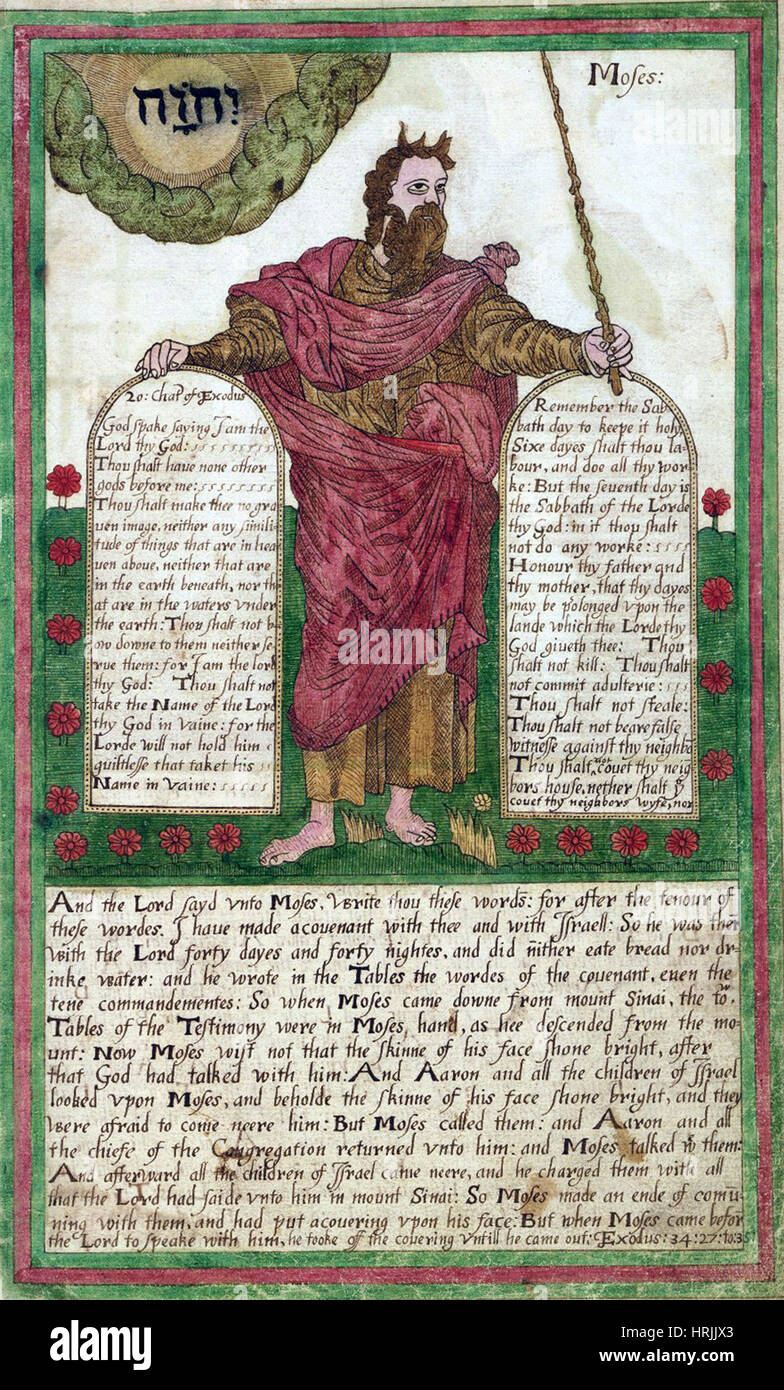 יְהֹוָה
Moses:
20: Chap: of Exodus
God spake saying I am the
Lord thy God:
Thou shalt have none other
gods before me:
Thou shalt make thee no gra
uen image, neither any simili
tude of things that are in hea
uen aboue, neither that are
in the earth beneath, nor th
at are in the waters vnder
the earth: Thou shalt not b
ow downe to them neither se
rue them: for I am the lord
thy God: Thou shalt not
take the Name of the Lord
thy God in vaine: for the
Lorde will not hold him
guiltlesse that taket his
Name in vaine:
Remember the Sab
bath day to keepe it holy
Sixe dayes shalt thou la
bour, and doe all thy wor
ke: But the seventh day is
the Sabbath of the Lorde
thy God: in it thou shalt
not do any worke:
Honour thy father and
thy mother, that thy dayes
may be prolonged vpon the
lande which the Lorde thy
God giueth thee: Thou
shalt not kill: Thou shalt
not commit adulterie:
Thou shalt not steale:
Thou shalt not beare false
witnesse against thy neighbo
Thou shalt not couet thy neig
bors house, nether shalt y
couet thy neighbors wyfe, nor
And the Lord sayd vnto Moses, Write thou these words: for after the tenour of
these wordes. I haue made a couenant with thee and with Israell: So he was ther
with the Lord forty dayes and forty nightes, and did nither eate bread nor dr-
inke water: and he wrote in the Tables the wordes of the couenant, euen the
tene commandementes: So when Moses came downe from mount Sinai, the tw.
Tables of the Testimony were in Moses hand, as hee descended from the mo-
unt: Now Moses wist not that the skinne of his face shone bright, after
that God had talked with him: And Aaron and all the children of Israel
looked vpon Moses, and beholde the skinne of his face shone bright, and they
were afraid to come neere him: But Moses called them: and Aaron and all
the chiefe of the Congregation returned vnto him: and Moses talked wth them:
And afterward all the children of Israel came neere, and he charged them with all
that the Lord had saide vnto him in mount Sinai: So Moses made an ende of comū-
ning with them, and had put a couering vpon his face: But when Moses came befor
the Lord to speake with him, he tooke off the couering vntill he came out: Exodus: 34: 27: to: 35
alamy
Image ID: HRJJX3
www.alamy.com